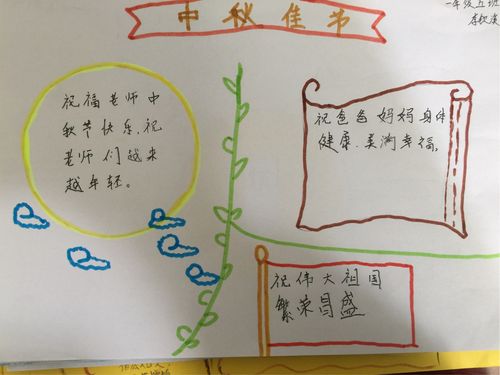 中秋佳节
一年级五班
祝福老师中
秋节快乐,祝
老师们越来
越年轻。
祝爸爸妈妈身体
健康.美满幸福,
祝伟大祖国
繁荣昌盛